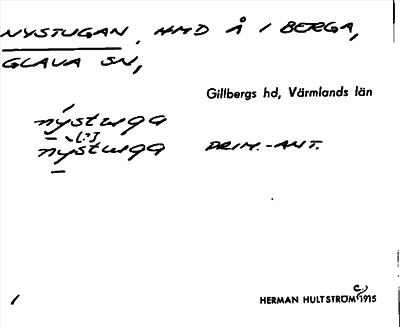 NYSTUGAN, HMD Å I BERGA,
GLAVA SN,
Gillbergs hd, Värmlands län
nýstugga
[?]
nystugga PRIM.-ANT.
1 HERMAN HULTSTRÖM C:) 1915